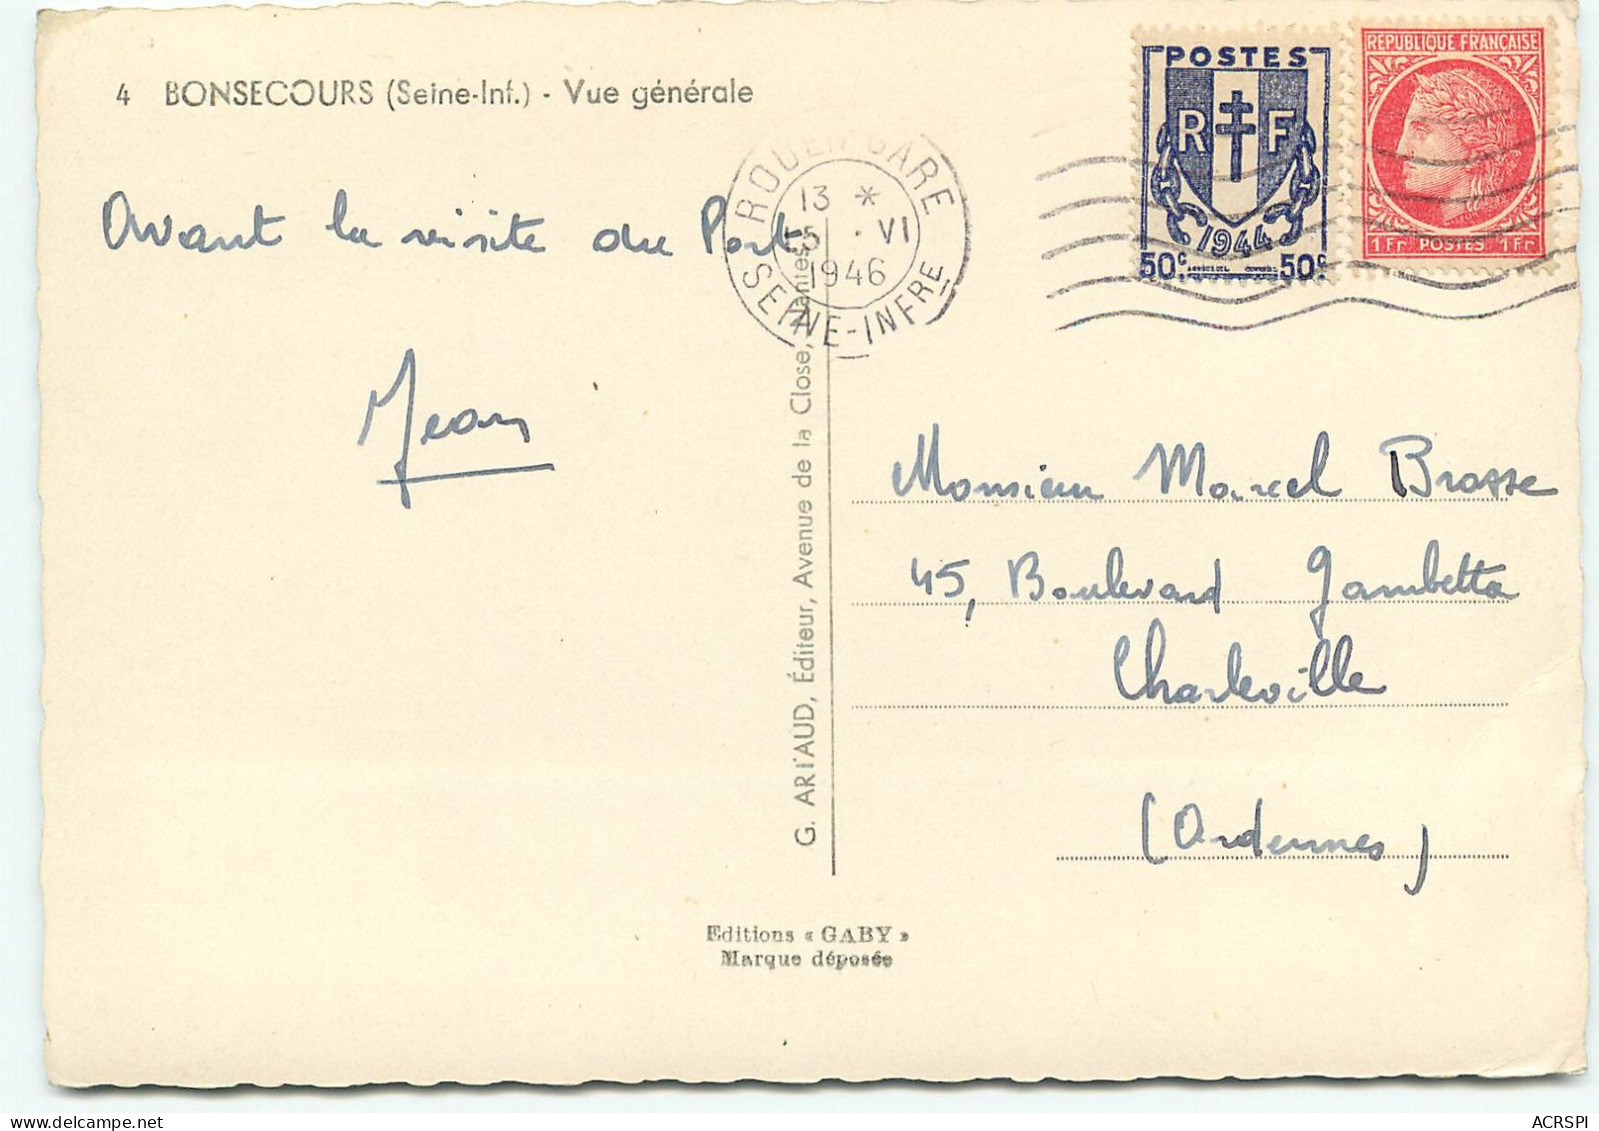 4 BONSECOURS (Seine-Inf.) - Vue générale
Avant la visite du Port
Jean
ROUEN GARE
13 *
5 · VI
1946
SEINE-INFRE
POSTES
R F
1944
50c 50c
REPUBLIQUE FRANÇAISE
1Fr POSTES 1Fr
G. ARTAUD, Éditeur, Avenue de la Close, Nantes
Monsieur Marcel Brosse
45, Boulevard Gambetta
Charleville
(Ardennes)
Editions « GABY »
Marque déposée
ACRSPI